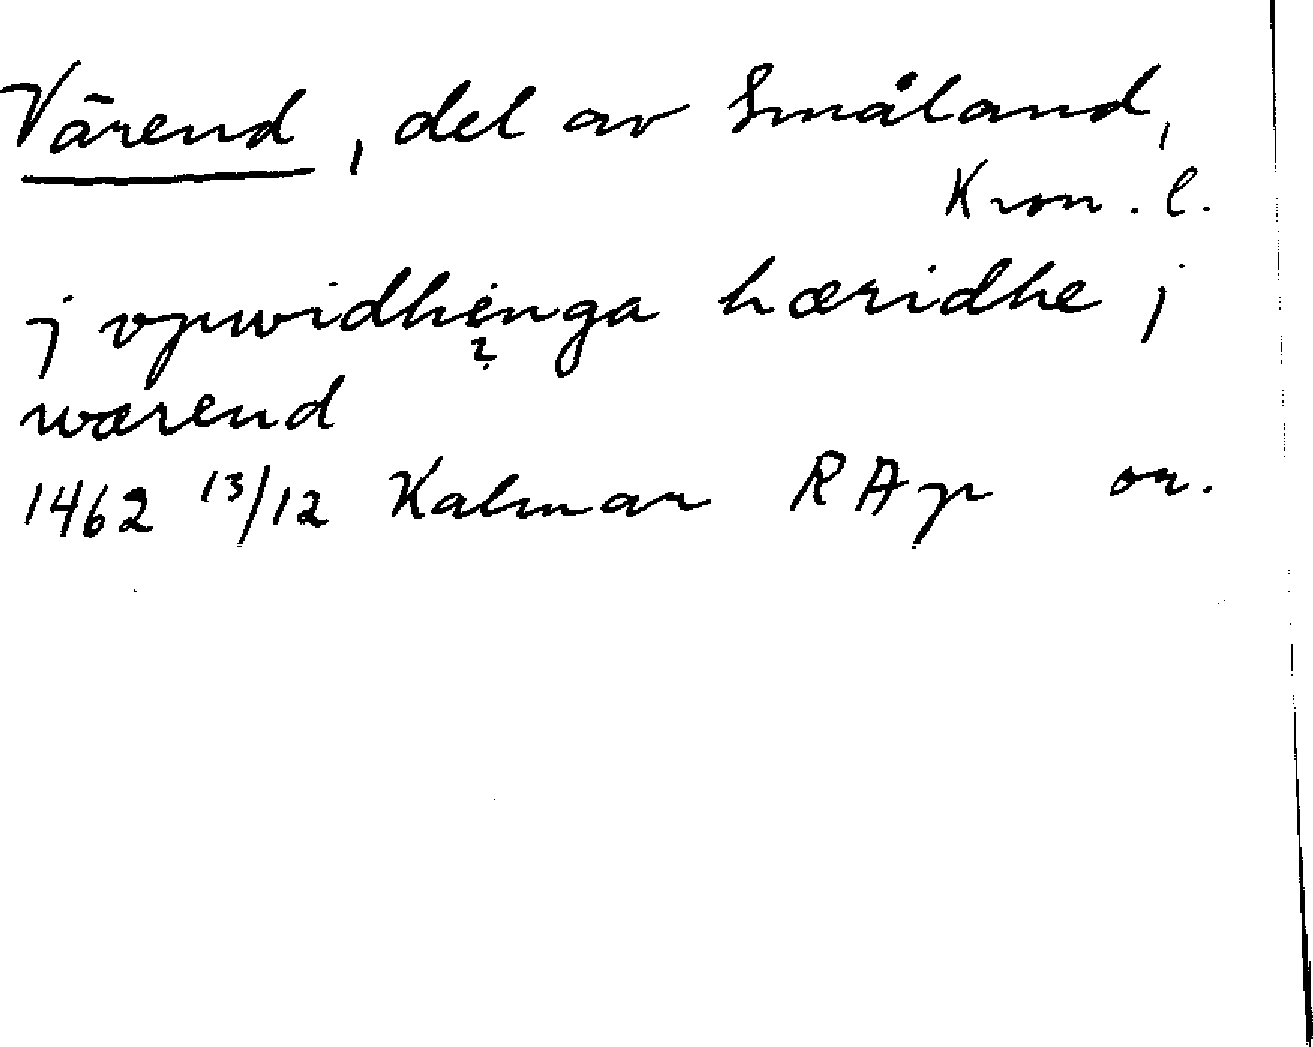 Värend, del av Småland,
Kron. l.
j vpwidhinga hæridhe j
?
wærend
1462 13/12 Kalmar RAp or.